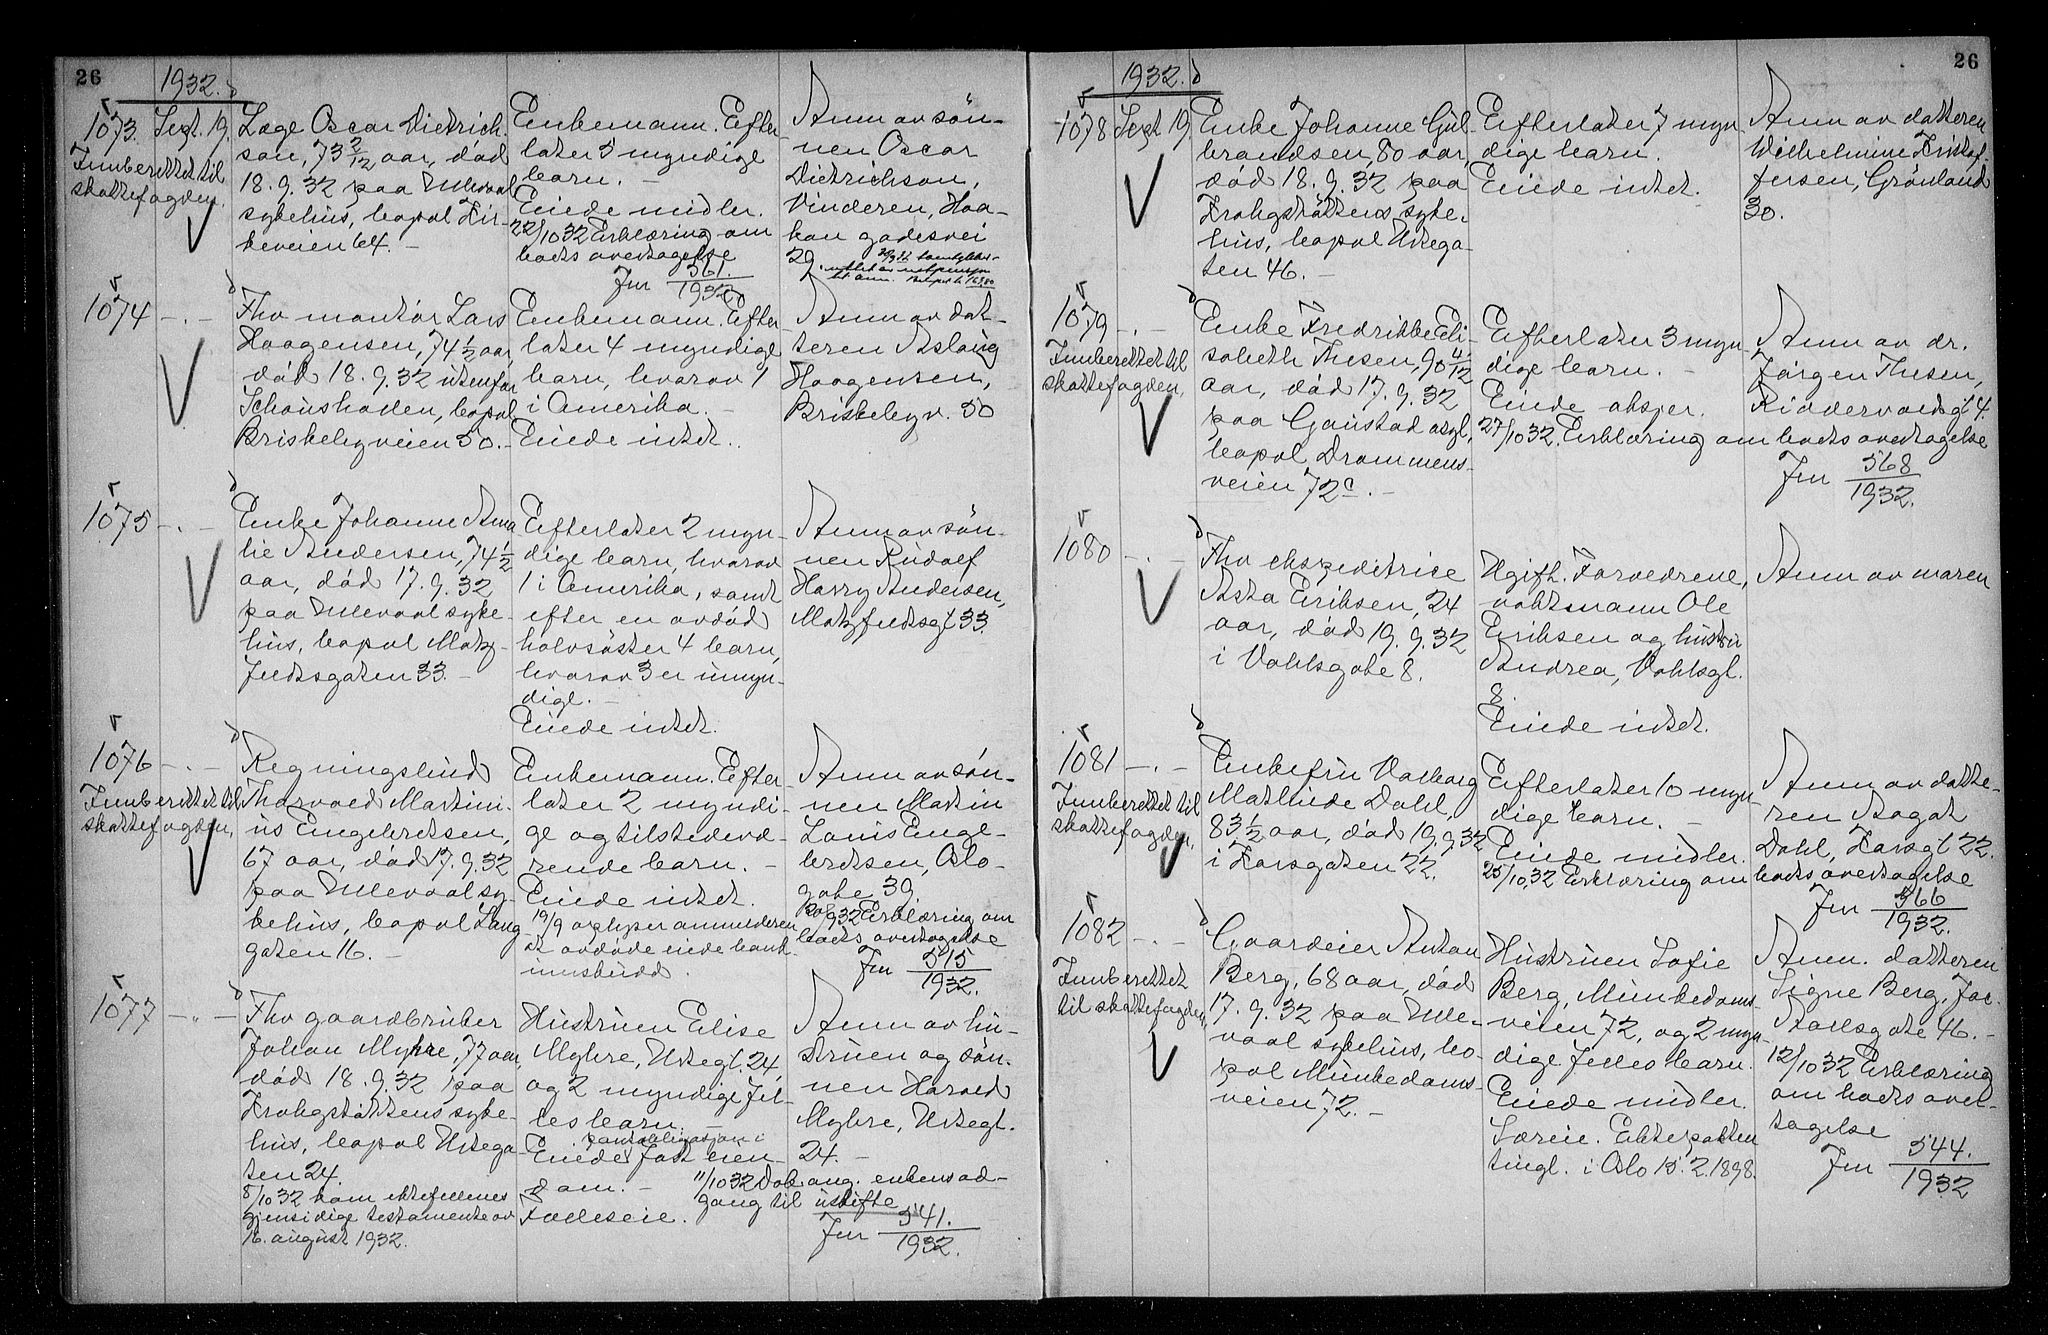 26
1932.
1073.
Sept. 19.
Innberettet til
skattefogden.
Læge Oscar Dietrich-
son, 73 2/12 aar, død
18.9.32 paa Ullevaal
sykehus, bopel Kir-
keveien 64. -
Enkemann. Efter-
later 5 myndige
barn. -
Eiede midler.
22/10 32 Erklæring om
boets overtagelse
Jnr 561.
1932
Anm av søn-
nen Oscar
Dietrichson,
Vinderen, Haa-
kon godesvei
29.
1074
- . -
Fhv montør Lars
Haagensen, 74 1/2 aar,
død 18.9.32 utenfor
Schouskroken, bopel
Briskebyveien 50. -
Enkemann. Efter-
later 4 myndige
barn, hvorav 1
i Amerika. -
Eiede intet.
Anm av dat-
teren Aslaug
Haagensen,
Briskebyv. 50
1075
- . -
Enke Johanne Ama-
lie Andersen, 74 1/2
aar, død 17.9.32
paa Ullevaal syke-
hus, bopel Matz-
feltsgaten 33. -
Efterlater 2 myn-
dige barn, hvorav
1 i Amerika, samt
efter en avdød
halvsøster 4 barn,
hvorav 3 er umyn-
dige. -
Eiede intet.
Anm av søn-
nen Rudolf
Harry Andersen,
Matzfeltsgt 33.
1076
- . -
Innberettet til
skattefogden.
Regningsbud
Thorvald Martini-
us Engebretsen,
67 aar, død 17.9.32
paa Ullevaal sy-
kehus, bopel Lang-
gaten 16. -
Enkemann. Efter-
later 2 myndi-
ge og tilstedevæ-
rende barn. -
Eiede intet.
19/9 oplyser anmelderen
at avdøde eiede bank-
innskudd.
Anm av søn-
nen Martin
Louis Enge-
bretsen, Oslo-
gate 39
Erklæring om
boets overtagelse
Jnr 515
1932.
1077
- " -
Fhv gaardbruker
Johan Myhre, 77 aar,
død 18.9.32 paa
Krohgstøttens syke-
hus, bopel Urtega-
ten 24.
8/10 32 kom ektefellenes
gjensidige testamente av
16. august 1932.
Hustruen Elise
Myhre, Urtegt. 24,
og 2 myndige fel-
les barn. -
pantobligasjon i
Eiede fast eien-
dom. -
Felleseie.
11/10 32 Dok ang. enkens ad-
gang til uskifte
Jnr 541.
1932.
Anm av hu-
struen og søn-
nen Harald
Myhre, Urtegt.
24. -
26
1932.
1078
Sept 19
Enke Johanne Gul-
brandsen, 80 aar,
død 18.9.32 paa
Krohgstøttens syke-
hus, bopel Urtega-
ten 46. -
Efterlater 7 myn-
dige barn.
Eiede intet.
Anm av datteren
Wilhelmine Kristof-
fersen, Grønland
30.
1079
- . -
Innberettet til
skattefogden.
Enke Fredrikke Eli-
sabeth Thesen, 90 4/12
aar, død 17.9.32
paa Gaustad asyl,
bopel Drammens-
veien 72 c. -
Efterlater 3 myn-
dige barn. -
Eiede aksjer.
27/10 32. Erklæring om boets overtagelse
Jnr 568
1932.
Anm av dr.
Jørgen Thesen,
Riddervoldsgt 4.
1080
- . -
Fhv ekspeditrice
Asta Eriksen, 24
aar, død 19.9.32
i Vahlsgate 8.
Ugift. Forældrene,
vaktmann Ole
Eriksen og hustru
Andrea, Vahlsgt.
8.
Eiede intet.
Anm av moren
1081
- . -
Innberettet til
skattefogden.
Enkefru Valborg
Mathilde Dahl,
83 1/2 aar, død 19.9.32
i Korsgaten 22.
Efterlater 10 myn-
dige barn. -
Eiede midler.
25/10.32 Erklæring om boets overtagelse
Jnr 566
1932.
Anm av datte-
ren Aagot
Dahl, Korsgt 22.
1082
- . -
Innberettet
til skattefogden
Gaardeier Anton
Berg, 68 aar, død
17.9.32 paa Ulle-
vaal sykehus, bo-
pel Munkedams-
veien 72. -
Hustruen Sofie
Berg, Munkedams-
veien 72, og 2 myn-
dige felles barn.
Eiede midler.
Særeie. Ektepakten
tingl. i Oslo 15.2.1898.
Anm. datteren
Signe Berg, Jac.
Aallsgate 46. -
12/10 32 Erklæring
om boets over-
tagelse
Jnr 544.
1932